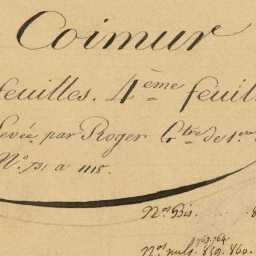 Coimur
feuilles. 4ème feuill
Levée par Roger Gtre de 1ère
Nos 731 a 1115.
Nos Bis.
763.764
Nos nuls 859. 860.